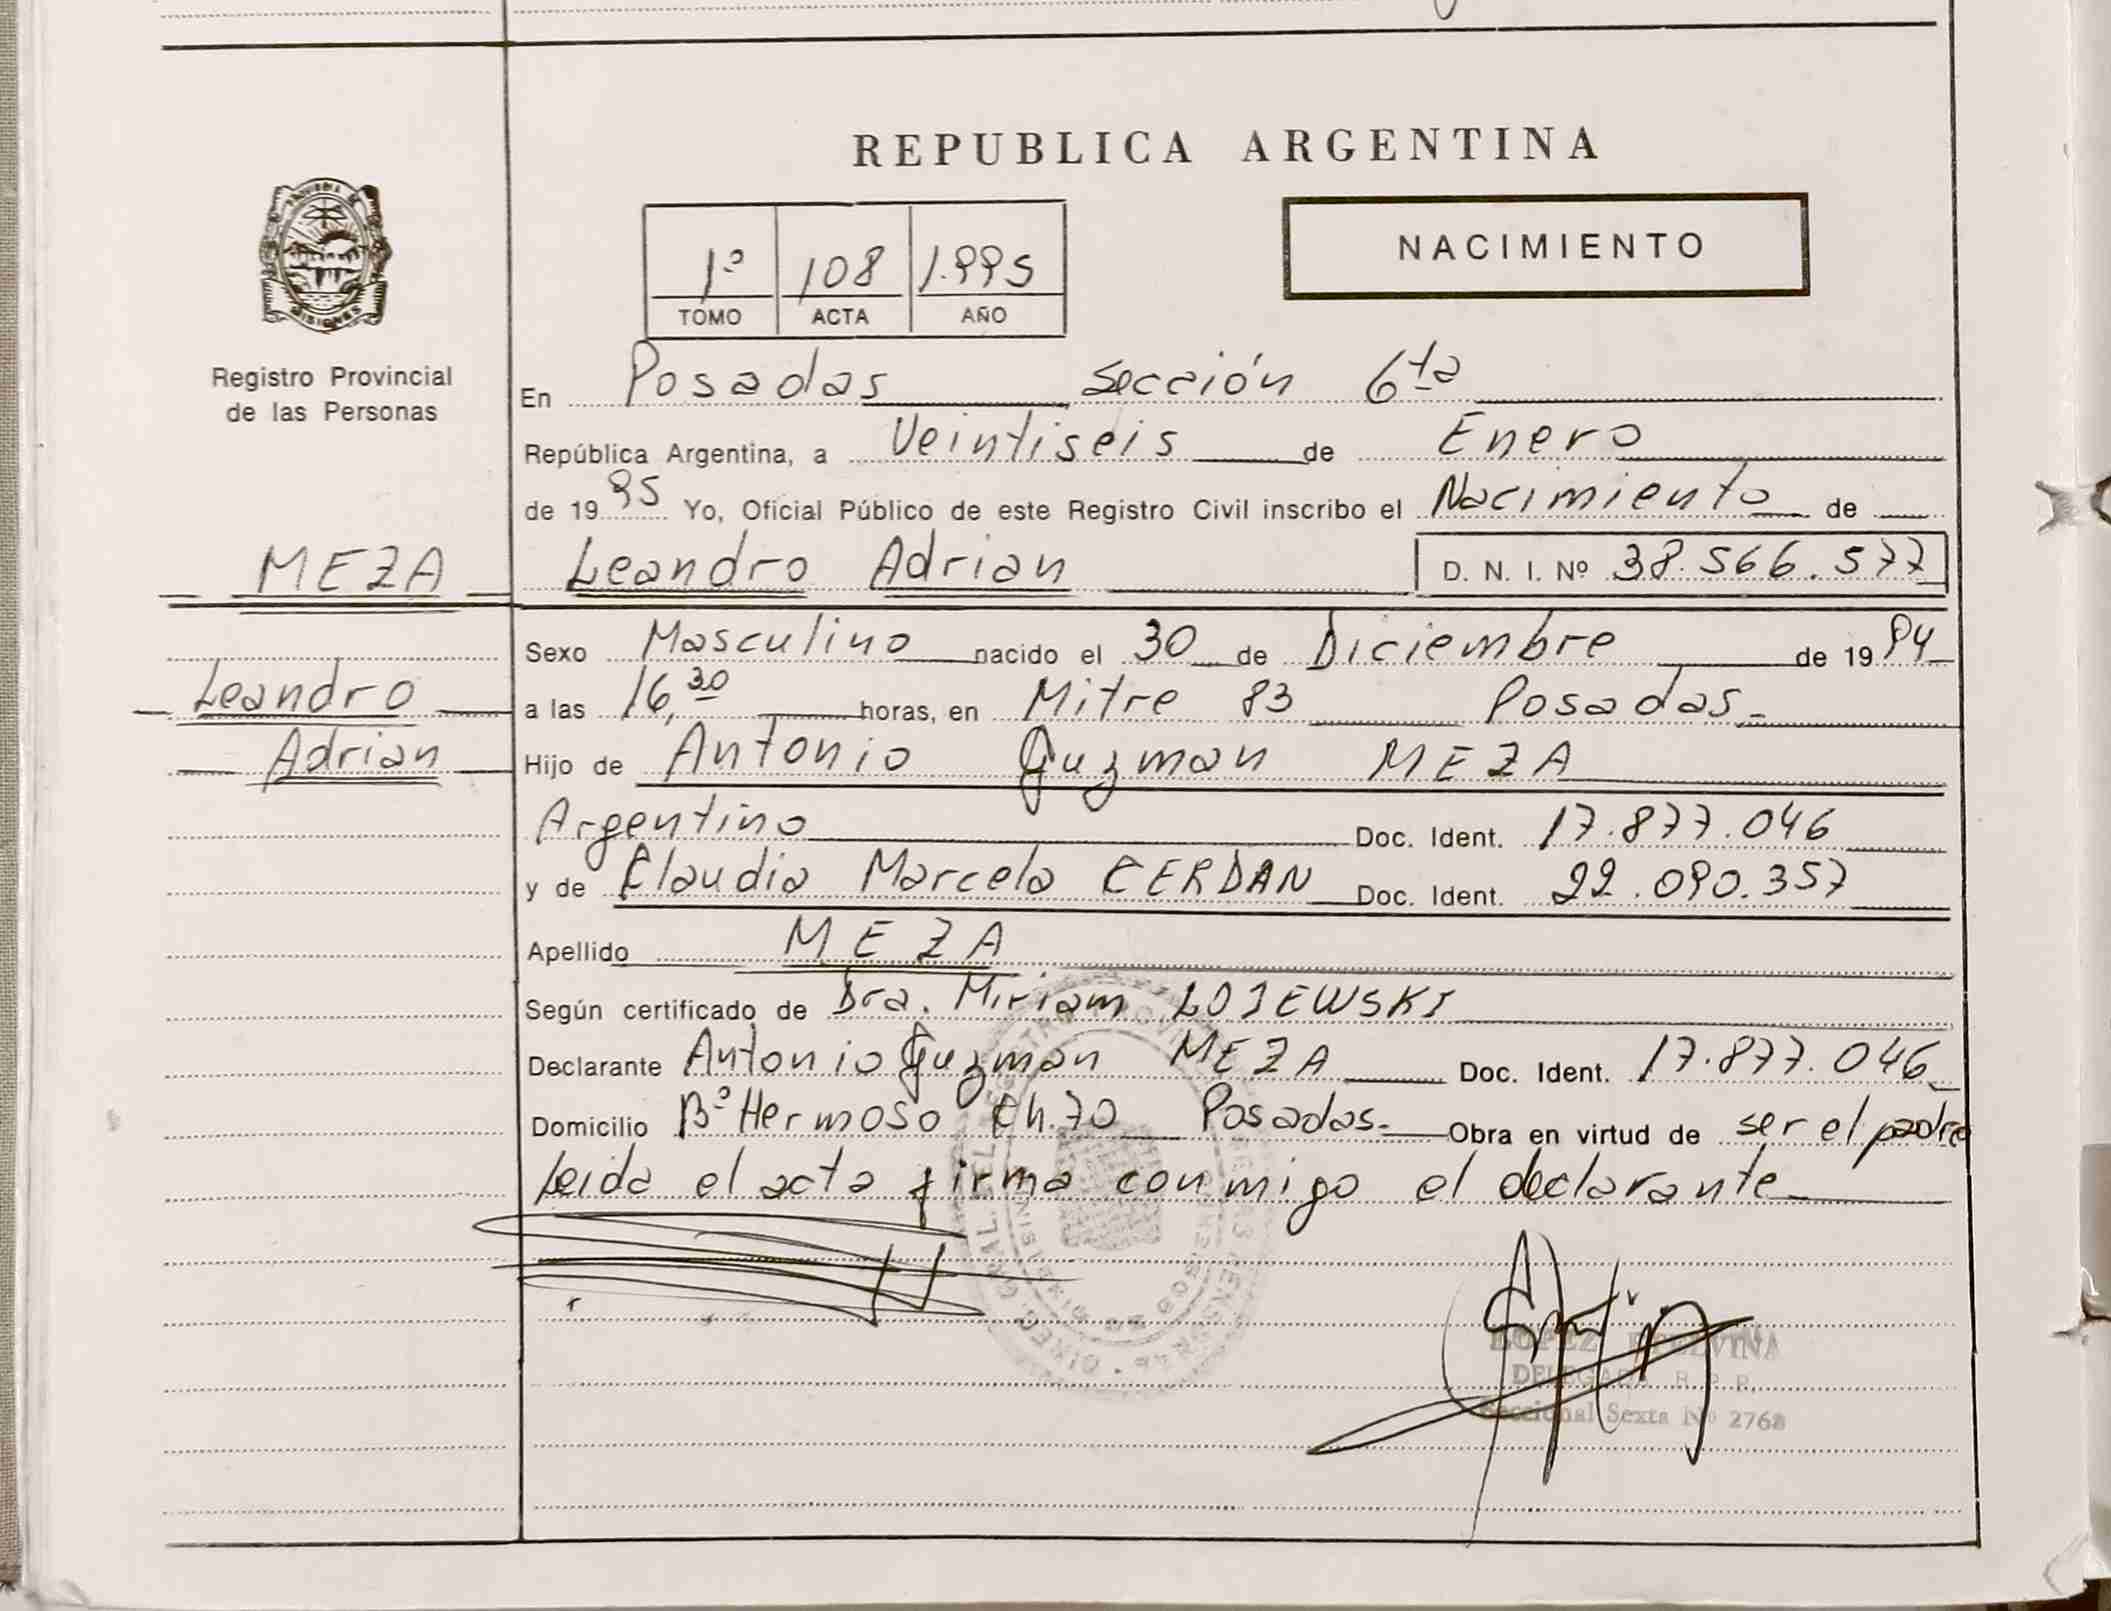 REPUBLICA ARGENTINA
1º 108 1.995
TOMO ACTA AÑO
NACIMIENTO
Registro Provincial
de las Personas
En Posadas Sección 6ta
República Argentina, a Veintiseis de Enero
de 1995 Yo, Oficial Público de este Registro Civil inscribo el Nacimiento de
MEZA
Leandro Adrian D. N. I. Nº 38.566.577
Sexo Masculino nacido el 30 de Diciembre de 1994
Leandro
a las 16,30 horas, en Mitre 83 Posadas
Adrian
Hijo de Antonio Guzman MEZA
Argentino Doc. Ident. 17.877.046
y de Claudia Marcela CERDAN Doc. Ident. 22.090.357
Apellido MEZA
Según certificado de Dra. Miriam LOJEWSKI
Declarante Antonio Guzman MEZA Doc. Ident. 17.877.046
Domicilio Bº Hermoso Ch. 70 Posadas.- Obra en virtud de ser el padre
Leida el acta firma conmigo el declarante
LOPEZ ETELVINA
DELEGADA R. P. P.
Seccional Sexta Nº 2768